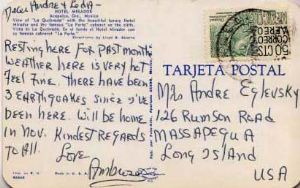 Dear Andre & Leda -
HOTEL MIRADOR
Acapulco, Gro., Mexico
View of "La Quebrada" with the beautiful luxury Hotel
Mirador and its famous "La Perla" cabaret on the cliffs.
Vista de "La Quebrada". En el fondo el Hotel Mirador con
su famoso cabaret "La Perla".
Resting here for past month
Weather here is very hot
Feel fine. There have been
3 earthquakes since I'd
been here. Will be home
in Nov. Kindest regards
to All.
Love
50 CTS
CORREO AEREO
MEXICO
TARJETA POSTAL
Mrs Andre Eglevsky
126 Rumson Road
Massapequa
Long Island
USA